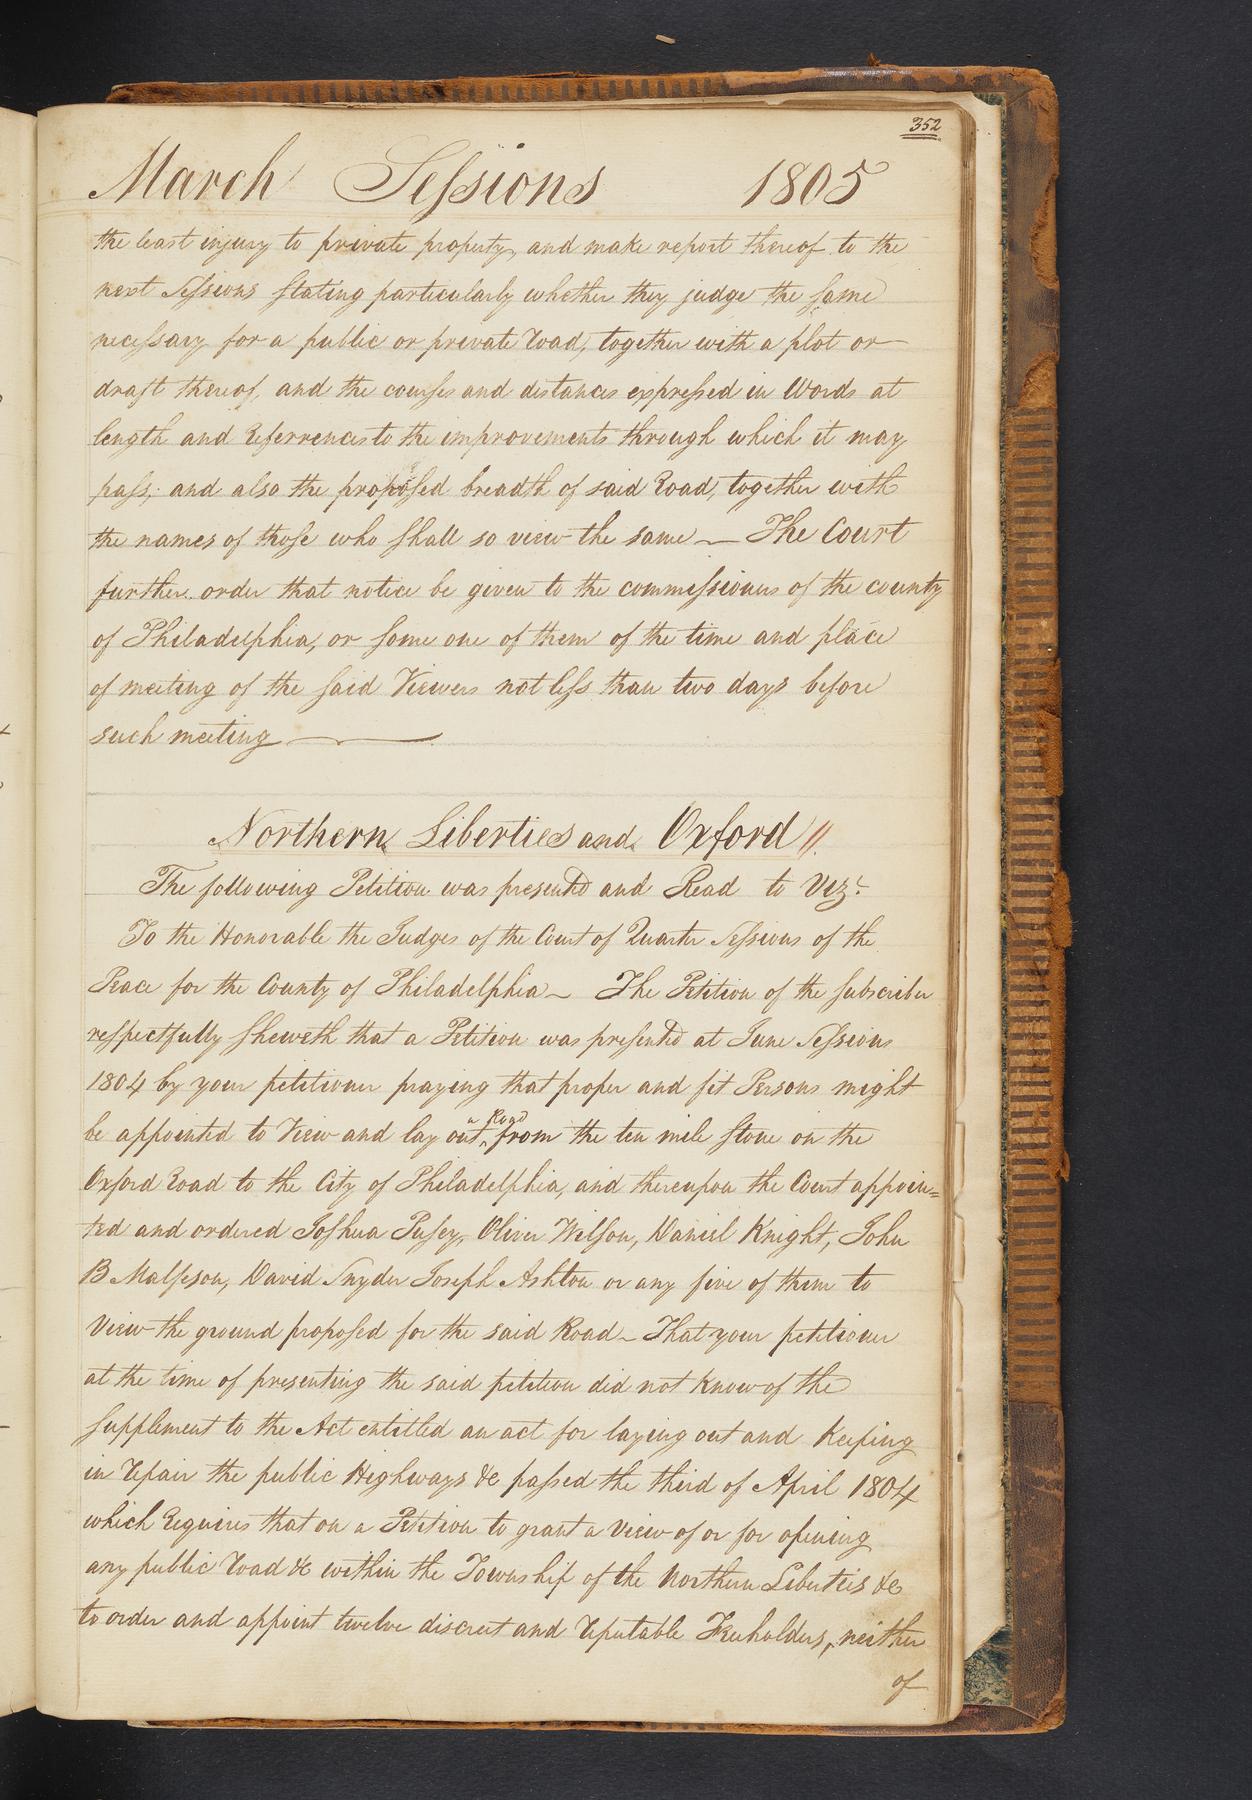 352
March Sessions 1805
the least injury to private property, and make report thereof to the
next Sessions Stating particularly whether they judge the same
necessary for a public or private Road, together with a plot or
draft thereof, and the courses and distances expressed in Words at
length and Referrences to the improvements through which it may
pass; and also the proposed breadth of said Road, together with
the names of those who shall so view the same — The Court
further order that notice be given to the commissioners of the county
of Philadelphia, or some one of them of the time and place
of meeting of the said Viewers not less than two days before
such meeting ———
Northern Liberties and Oxford //
The following Petition was presented and Read to Vizt
To the Honorable the Judges of the Court of Quarter Sessions of the
Peace for the County of Philadelphia — The Petition of the subscriber
respectfully sheweth that a Petition was presented at June Sessions
1804 by your petitioner praying that proper and fit Persons might
be appointed to View and lay out a Road from the ten mile stone on the
Oxford Road to the City of Philadelphia, and thereupon the Court appoin=
ted and ordered Joshua Pusey, Oliver Wilson, Daniel Knight, John
B Malseson, David Snyder Joseph Ashton or any five of them to
View the ground proposed for the said Road — That your petitioner
at the time of presenting the said petition did not know of the
supplement to the Act entitled an act for laying out and Keeping
in Repair the public Highways &c passed the third of April 1804
which Requires that on a Petition to grant a View of or for opening
any public Road &c within the Township of the Northern Liberties &c
to order and appoint twelve discreet and Reputable Freeholders, neither
of